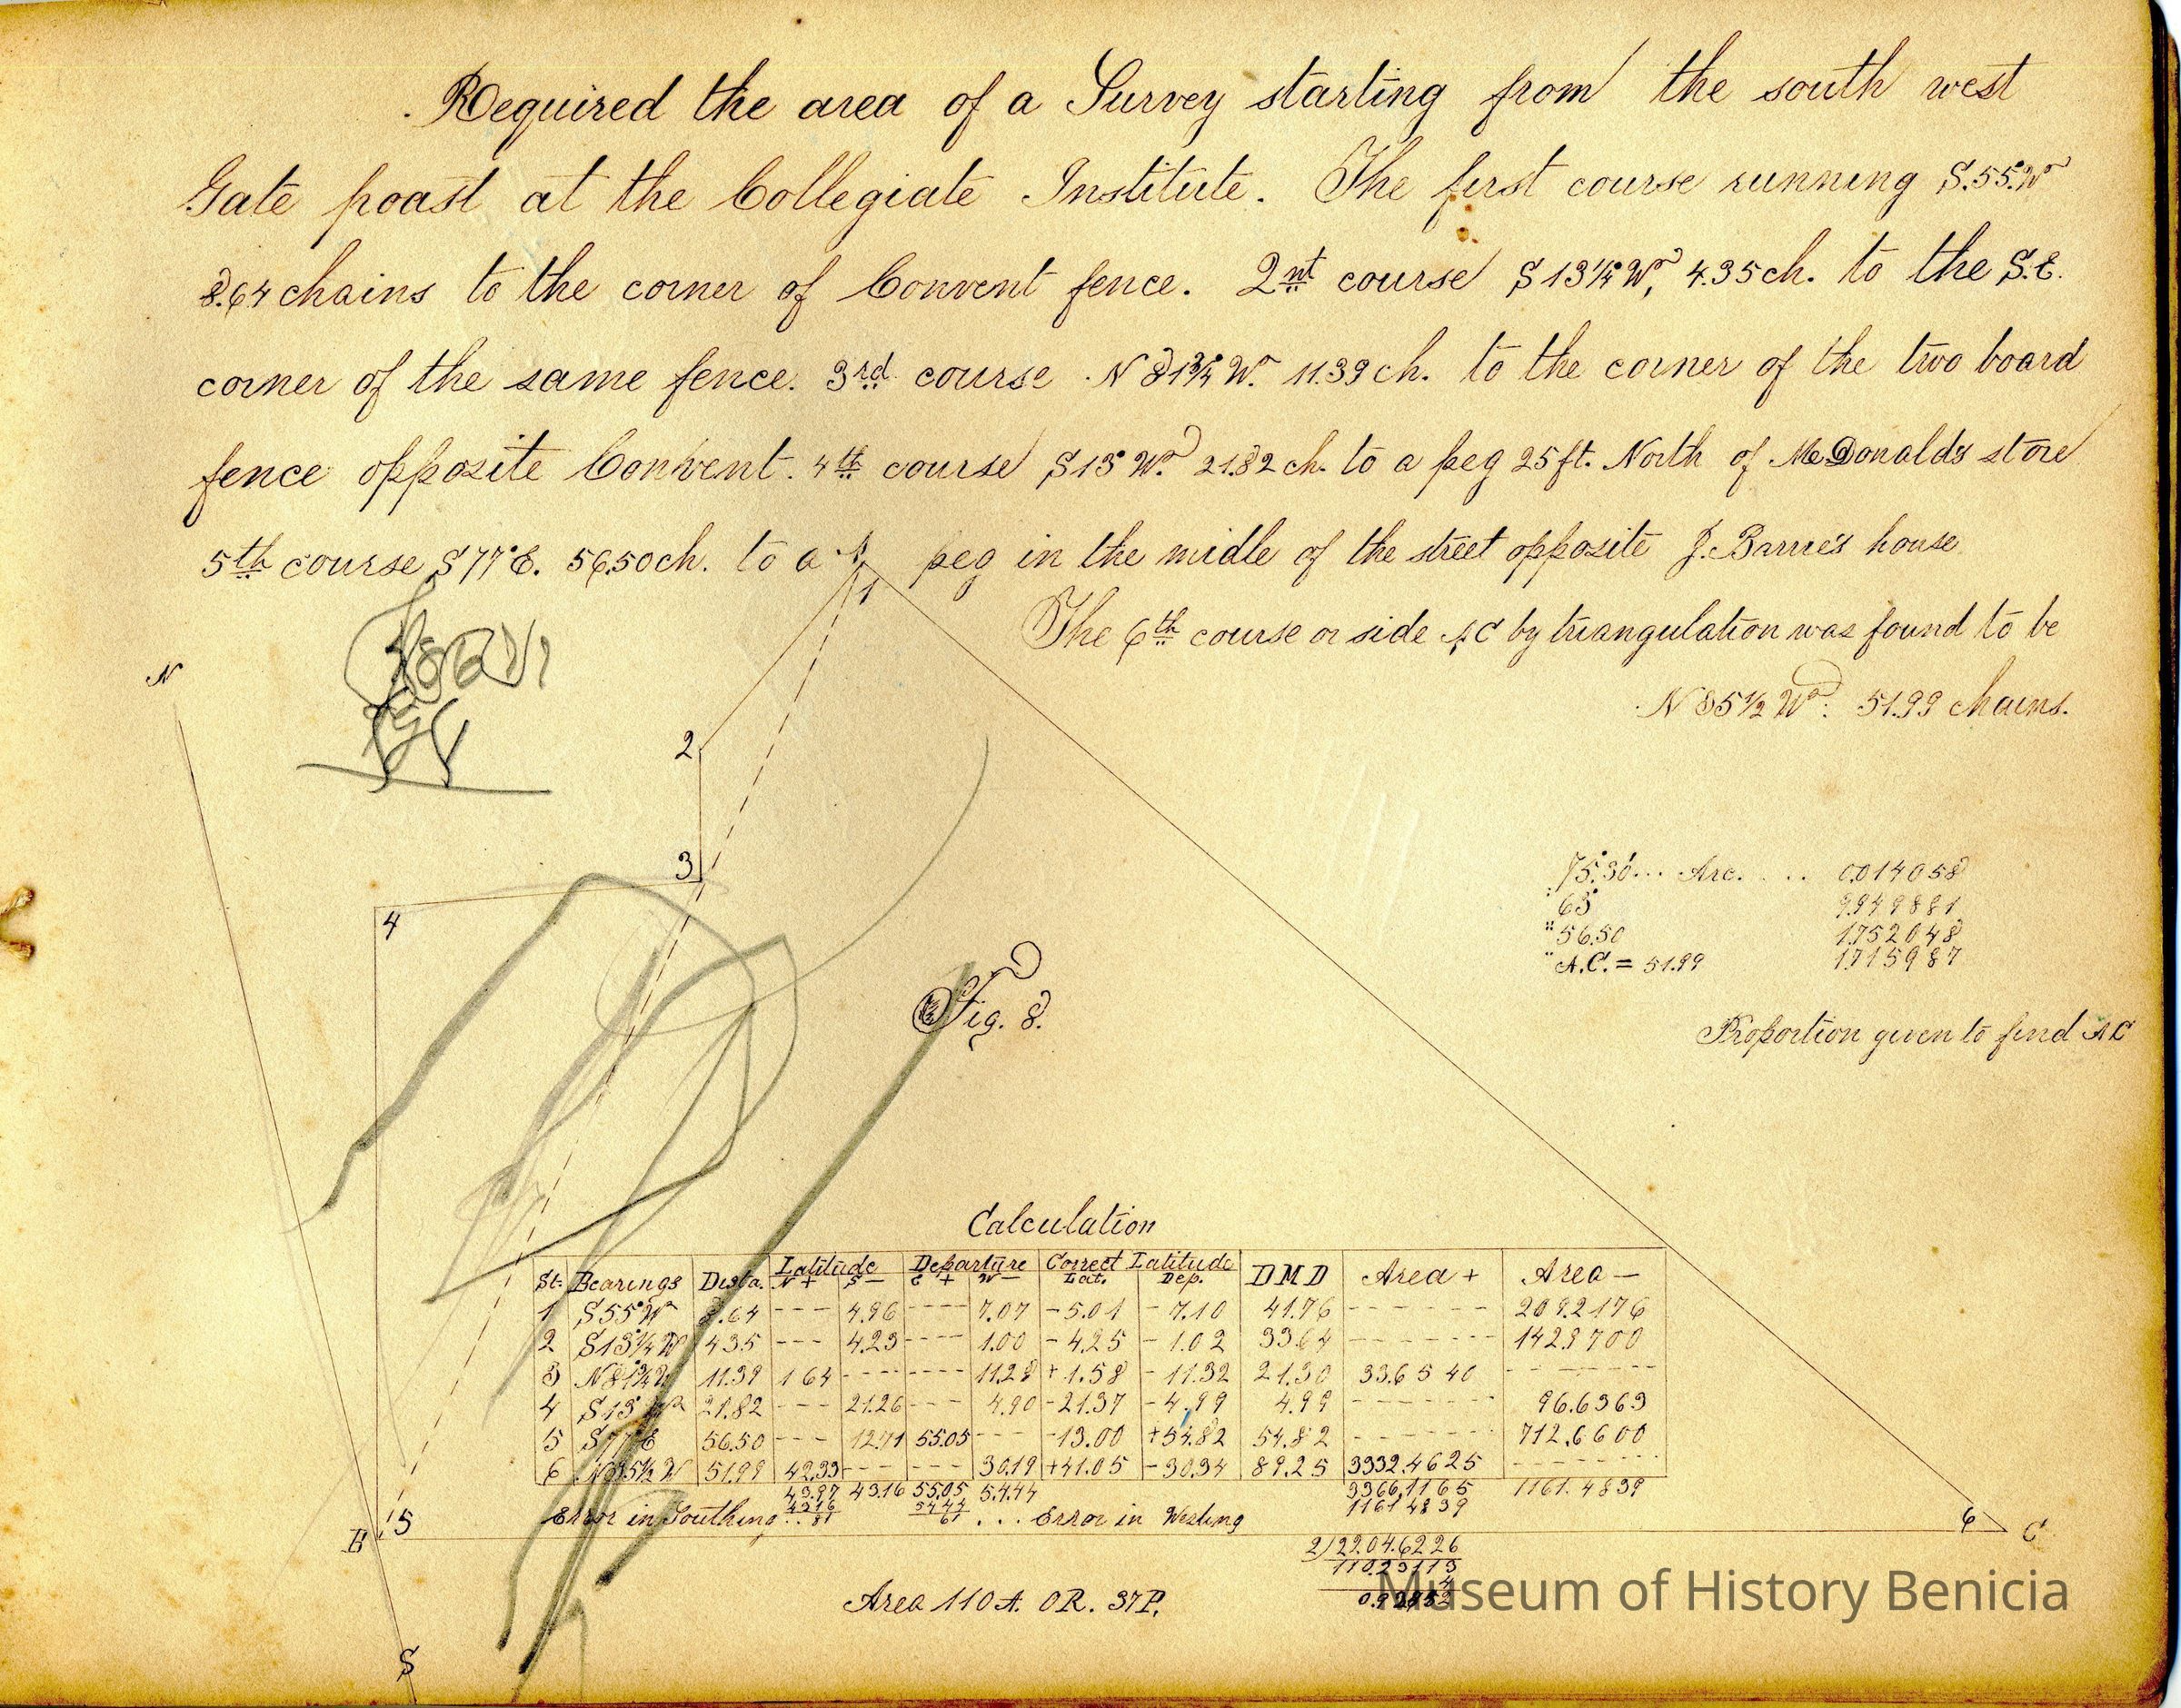 Required the area of a Survey starting from the south west
Gate poast at the Collegiate Institute. The first course running S.55°.W
8.64 chains to the corner of Convent fence. 2nt course S 13¼° W, 4.35 ch. to the S.E.
corner of the same fence. 3rd course N 81¾° W. 11.39 ch. to the corner of the two board
fence opposite Convent. 4th course S 13° W. 21.82 ch. to a peg 25 ft. North of McDonalds store
5th course S 77° E. 56.50 ch. to a peg in the midle of the street opposite J. Barrie's house
A
1
The 6th course or side AC by triangulation was found to be
N 85½ W: 51.99 chains.
N
2
3
4
75°.30'... Arc. . . . 0.014058
: 65° 9.949881
:: 56.50 1.752048
: A.C. = 51.99 1.715987
Proportion given to find AC
Fig. 8.
Calculation
St. Bearings Dista. Latitude Departure Correct Latitude DMD Area + Area —
N + S — E + W — Lat. Dep.
1 S 55° W 8.64 --- 4.96 ---- 7.07 - 5.01 - 7.10 41.76 ------ 209.2176
2 S 13¼ W 4.35 --- 4.23 ---- 1.00 - 4.25 - 1.02 33.64 ------ 142.9700
3 N 81¾ W 11.39 1 64 ---- ---- 11.28 + 1.58 - 11.32 21.30 33.6 5 40 ------
4 S 13° W 21.82 --- 21.26 --- 4.90 - 21.37 - 4.99 4.99 ------ 96.6363
5 S 77° E 56.50 --- 12.71 55.05 --- -13.00 +54.82 54.82 ------ 712.6600
6 N 85½ W 51.99 42.33 --- --- 30.19 +41.05 - 30.34 89.25 3332.4625 ------
43.97 43.16 55.05 54.44 3366.1165 1161.4839
Error in Southing 43 16 54 44 1161 4839
.. 81 61 ... Error in Westing
B 5
6 C
2)22.04.6226
110.23113
4
0.92452
Area 110 A. 0 R. 37 P.
S
Museum of History Benicia